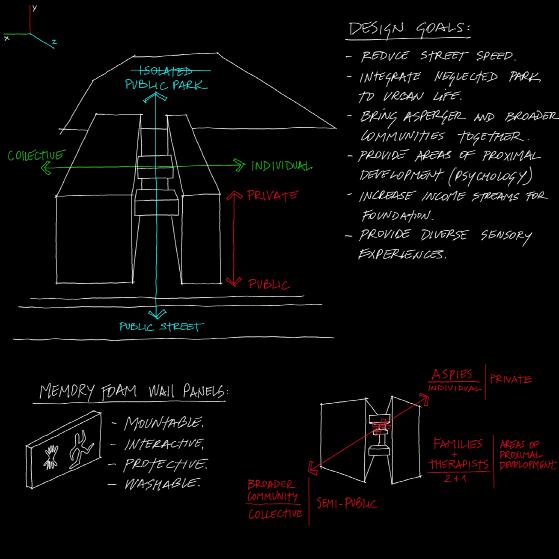 y
x
z
ISOLATED
PUBLIC PARK
COLLECTIVE
INDIVIDUAL
PRIVATE
PUBLIC
PUBLIC STREET
DESIGN GOALS:
- REDUCE STREET SPEED.
- INTEGRATE NEGLECTED PARK
TO URBAN LIFE.
- BRING ASPERGER AND BROADER
COMMUNITIES TOGETHER.
- PROVIDE AREAS OF PROXIMAL
DEVELOPMENT (PSYCHOLOGY)
- INCREASE INCOME STREAMS FOR
FOUNDATION.
- PROVIDE DIVERSE SENSORY
EXPERIENCES.
MEMORY FOAM WALL PANELS:
- MOUNTABLE.
- INTERACTIVE.
- PROTECTIVE.
- WASHABLE.
ASPIES
INDIVIDUAL
PRIVATE
FAMILIES
+
THERAPISTS
2+1
AREAS OF
PROXIMAL
DEVELOPMENT
BROADER
COMMUNITY
COLLECTIVE
SEMI-PUBLIC